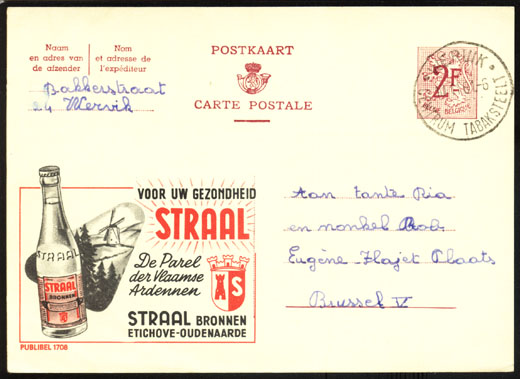 Naam
en adres van
de afzender
Nom
et adresse de
l'expéditeur
POSTKAART
CARTE POSTALE
2F
BELGIQUE
WERVIK
CENTRUM TABAKSTEELT
Bakkerstraat
24 Wervik
VOOR UW GEZONDHEID
STRAAL
De Parel
der Vlaamse
Ardennen
S
STRAAL BRONNEN
ETICHOVE-OUDENAARDE
STRAAL
STRAAL
BRONNEN
PUBLIBEL 1708
Aan tante Ria
en nonkel Rob
Eugène Flajet Plaats
Brussel V